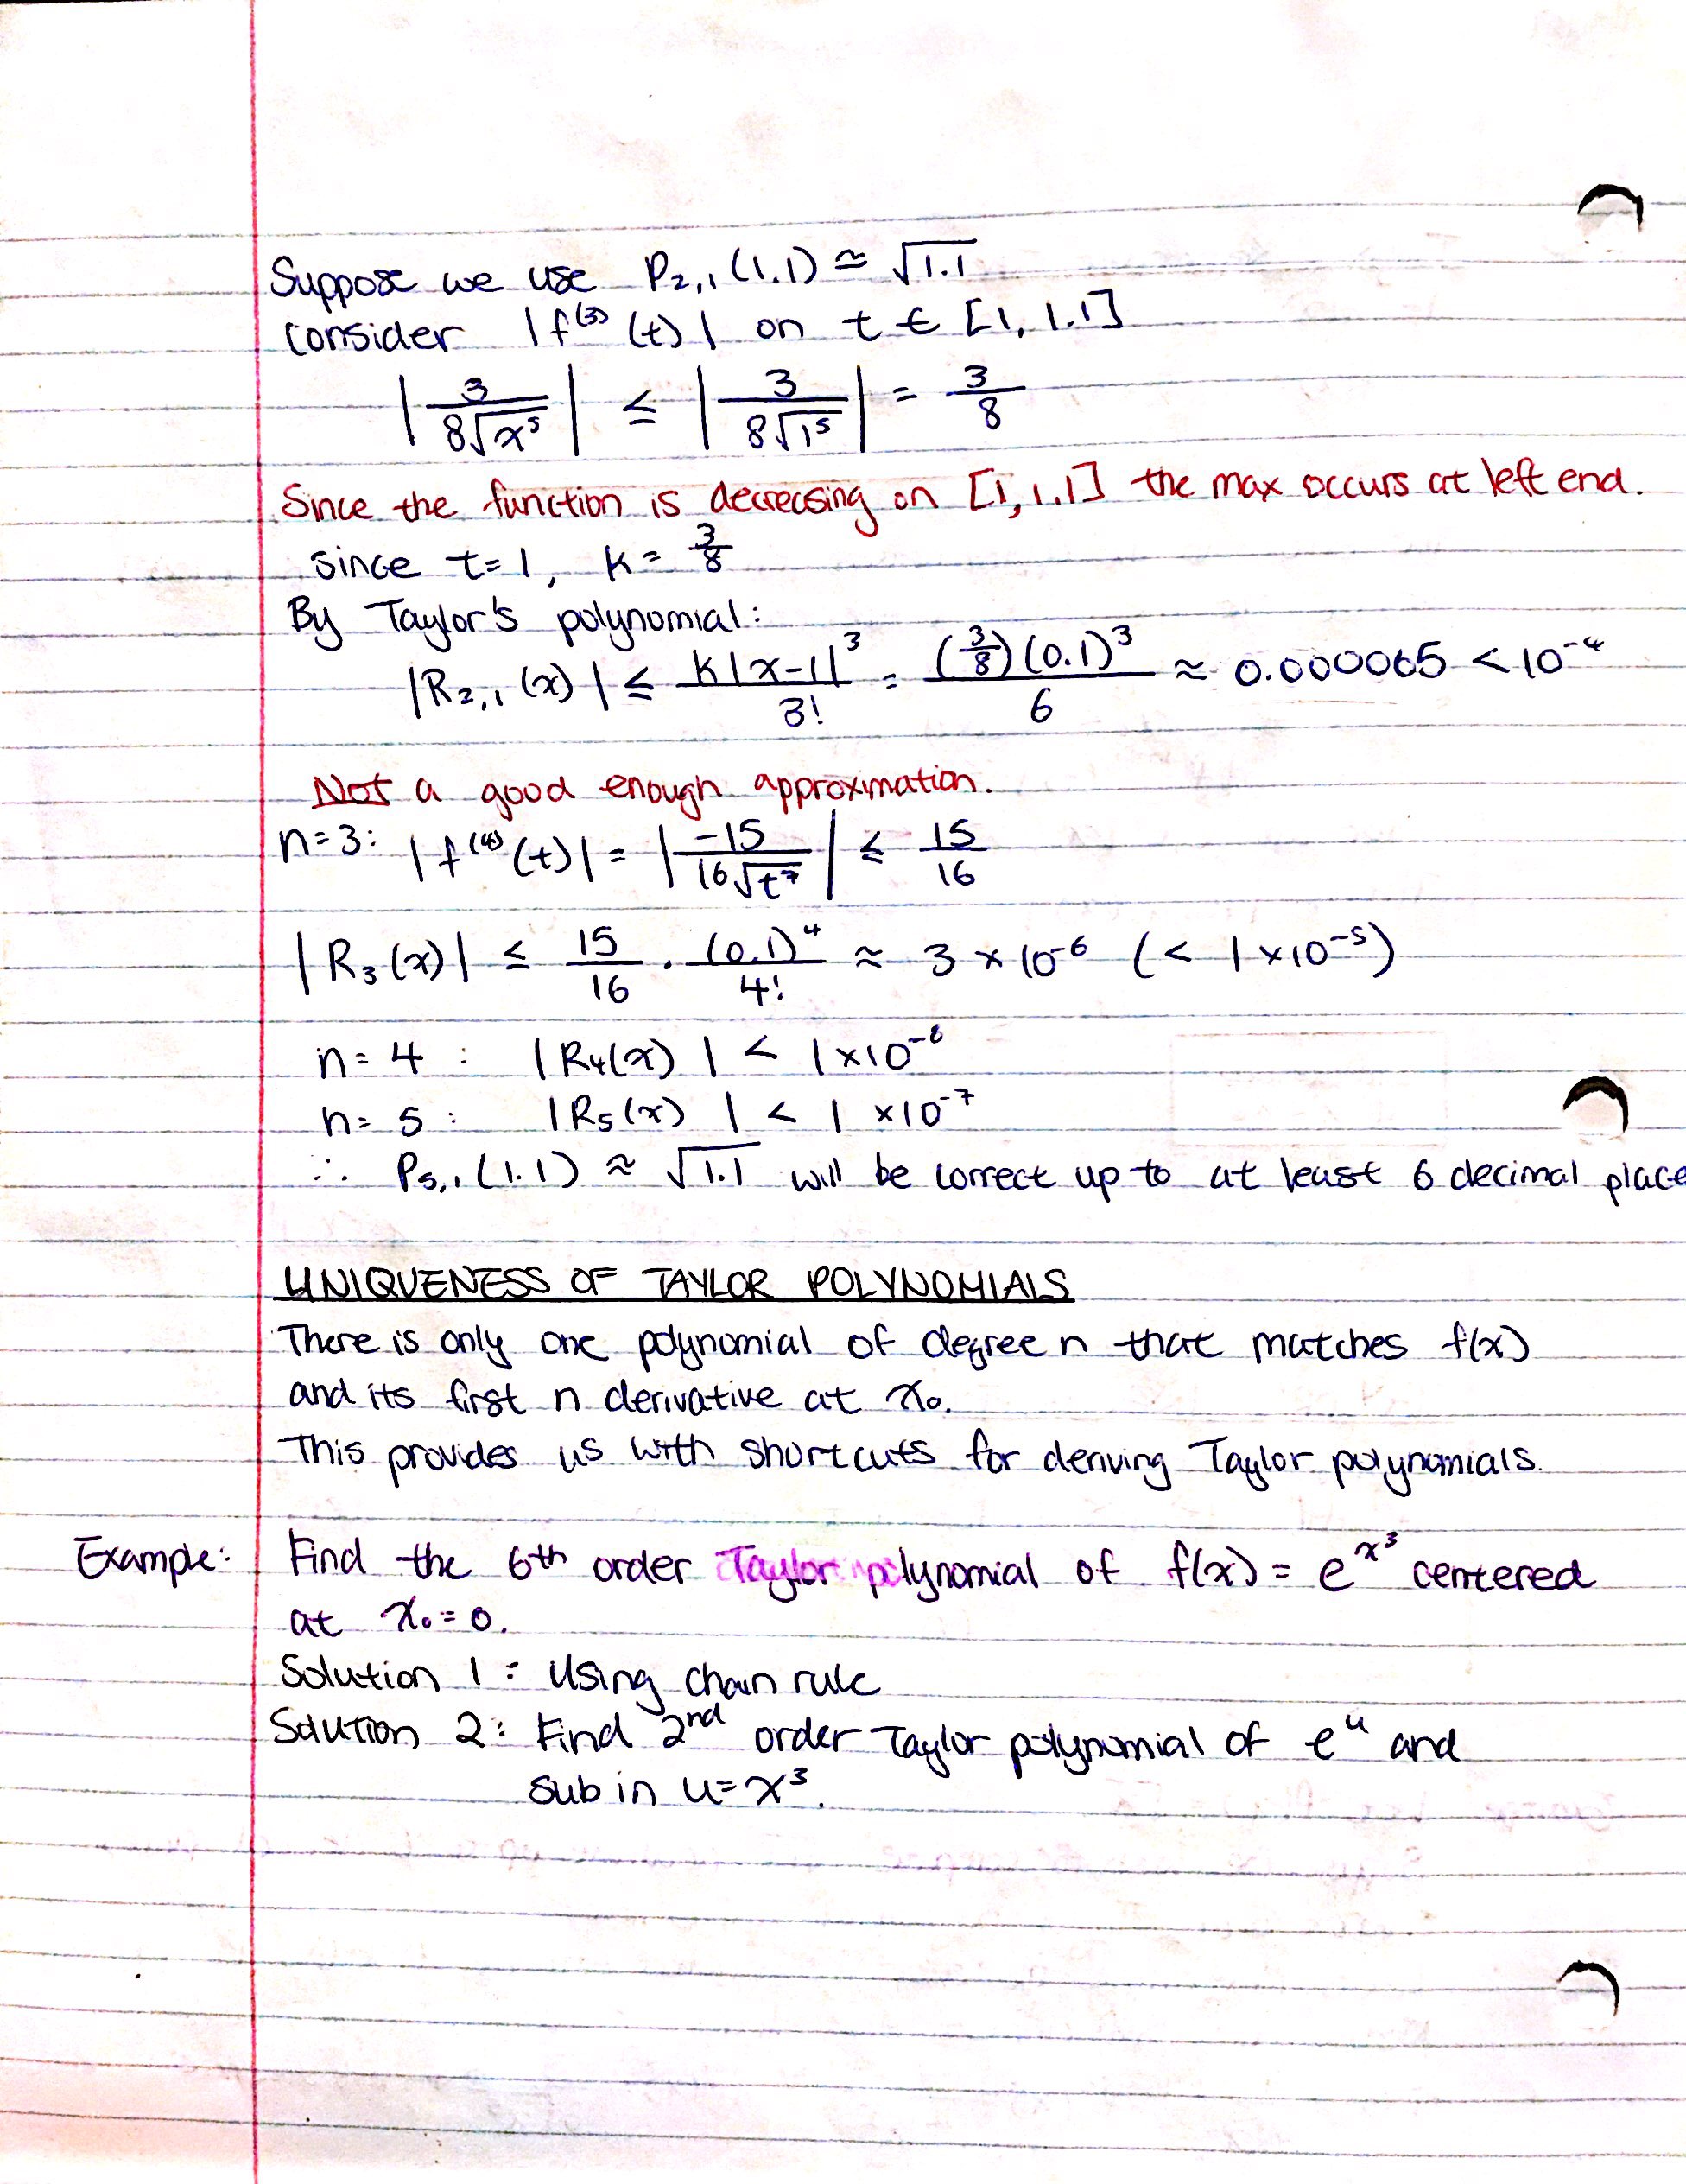 Suppose we use P₂,₁(1.1) ≃ √1.1
consider |f⁽³⁾(t)| on t ∈ [1, 1.1]
|3/(8√x⁵)| ≤ |3/(8√1⁵)| = 3/8
Since the function is decreasing on [1, 1.1] the max occurs at left end.
since t=1, K = 3/8
By Taylor's polynomial:
|R₂,₁(x)| ≤ K|x-1|³/3! = (3/8)(0.1)³/6 ≈ 0.000065 < 10⁻⁴
Not a good enough approximation.
n=3: |f⁽⁴⁾(t)| = |-15/(16√t⁷)| ≤ 15/16
|R₃(x)| ≤ 15/16 · (0.1)⁴/4! ≈ 3 × 10⁻⁶ (< 1×10⁻⁵)
n= 4 : |R₄(x)| < 1×10⁻⁶
n= 5 : |R₅(x)| < 1 ×10⁻⁷
∴ P₅,₁(1.1) ≈ √1.1 will be correct up to at least 6 decimal place
UNIQUENESS OF TAYLOR POLYNOMIALS
There is only one polynomial of degree n that matches f(x)
and its first n derivative at x₀.
This provides us with shortcuts for deriving Taylor polynomials.
Example: Find the 6th order Taylor polynomial of f(x) = e^x³ centered
at x₀=0.
Solution 1: Using chain rule
Solution 2: Find 2nd order Taylor polynomial of eᵘ and
sub in u=x³.